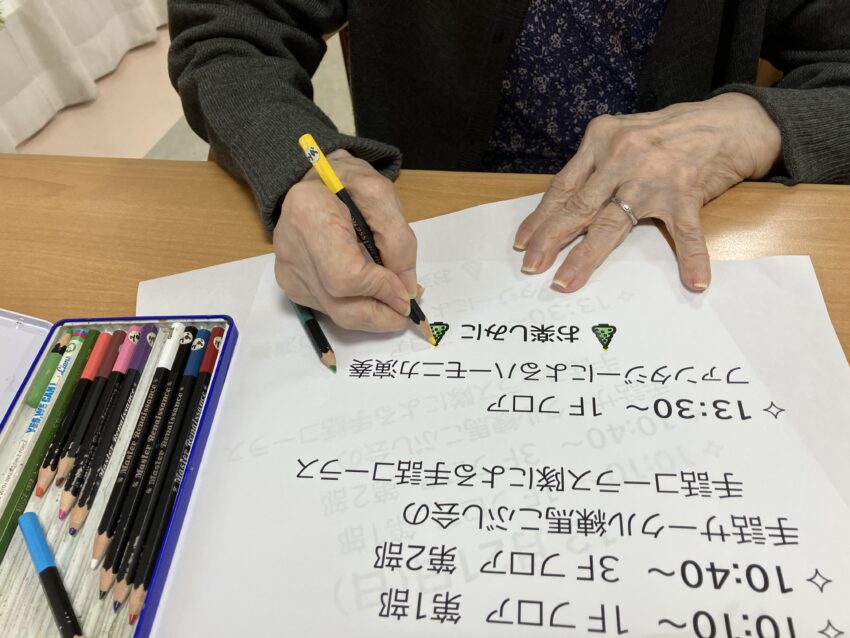 ✧ 10:10~ 1Fフロア 第1部
✧ 10:40~ 3Fフロア 第2部
手話サークル練馬こぶし会の
手話コーラス隊による手話コーラス
✧ 13:30~ 1Fフロア
ファンタジーによるハーモニカ演奏
お楽しみに
YES, WE CAN!
Master Renaissance
Master Renaissance
Master Renaissance